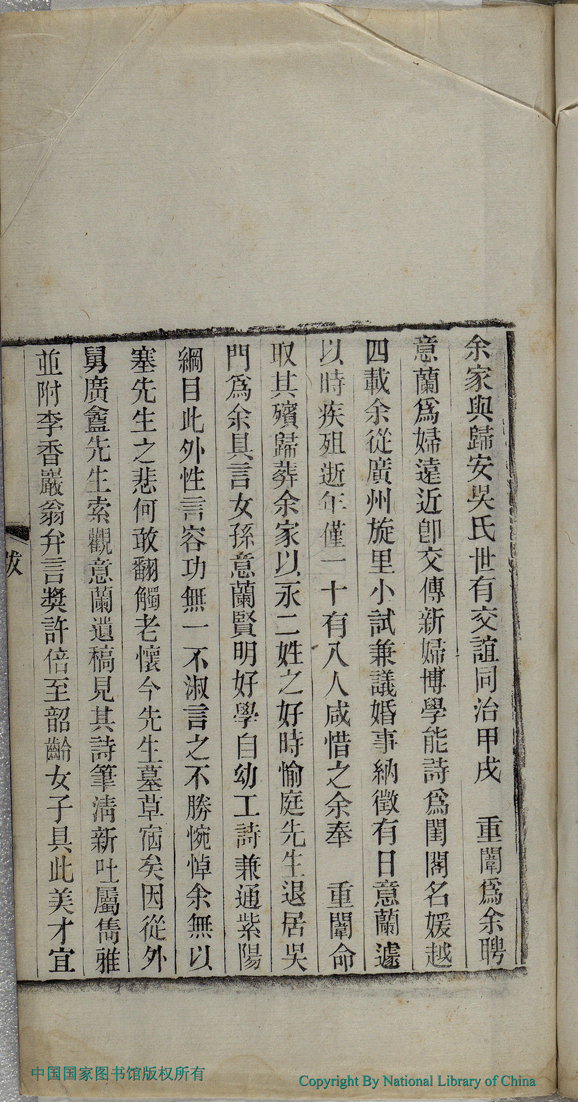 余家與歸安吳氏世有交誼同治甲戌　重闈爲余聘
意蘭爲婦遠近卽交傳新婦博學能詩爲閨閣名媛越
四載余從廣州旋里小試兼議婚事納徵有日意蘭遽
以時疾殂逝年僅一十有八人咸惜之余奉　重闈命
取其殯歸葬余家以永二姓之好時愉庭先生退居吳
門爲余具言女孫意蘭賢明好學自幼工詩兼通紫陽
綱目此外性言容功無一不淑言之不勝惋悼余無以
塞先生之悲何敢翻觸老懷今先生墓草宿矣因從外
舅廣盦先生索觀意蘭遺稿見其詩筆淸新吐屬雋雅
並附李香嚴翁弁言獎許倍至韶齡女子具此美才宜
跋
中国国家图书馆版权所有
Copyright By National Library of China